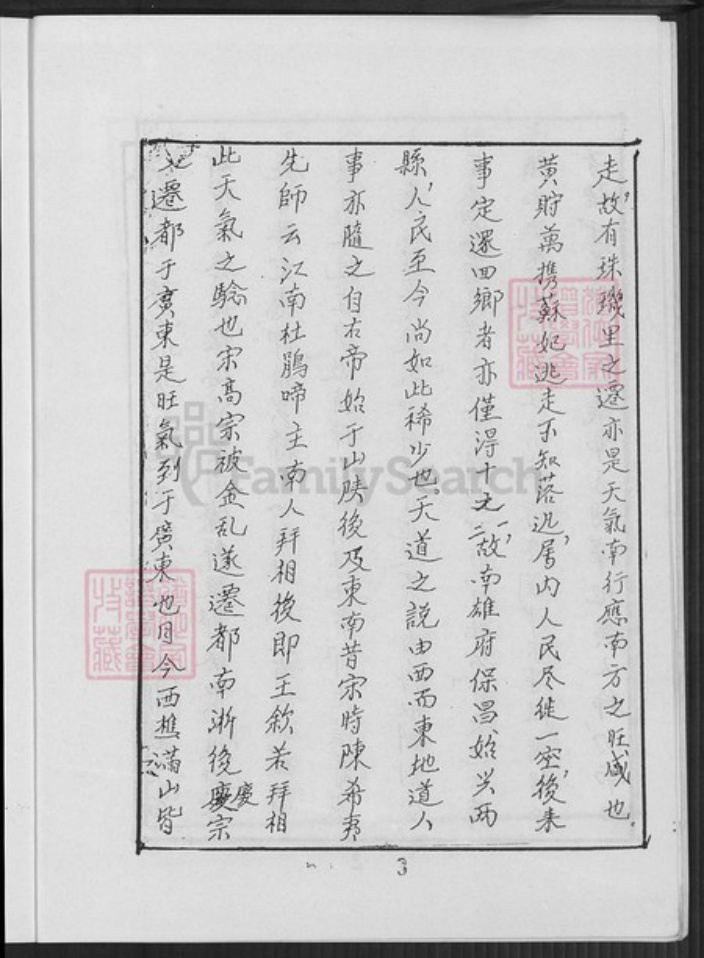 走，故有珠璣里之遷亦是天氣南行應南方之旺咸也.
黃貯萬携蘇妃逃走不知落迯，屬內人民尽徙一空，後来
事定還回鄉者亦僅淂十之一二，故南雄府保昌始兴两
縣，人民至今尚如此稀少也。天道之説由西而東地道人
事亦隨之自右帝始于山陕後及東南昔宋時陳希夷
先師云江南杜鵑啼主南人拜相後即王欽若拜相
此天氣之騐也宋高宗被金乱遂遷都南浙後慶宗
遷都于廣東是旺氣到于廣東也目今西樵滿山皆
3
FamilySearch